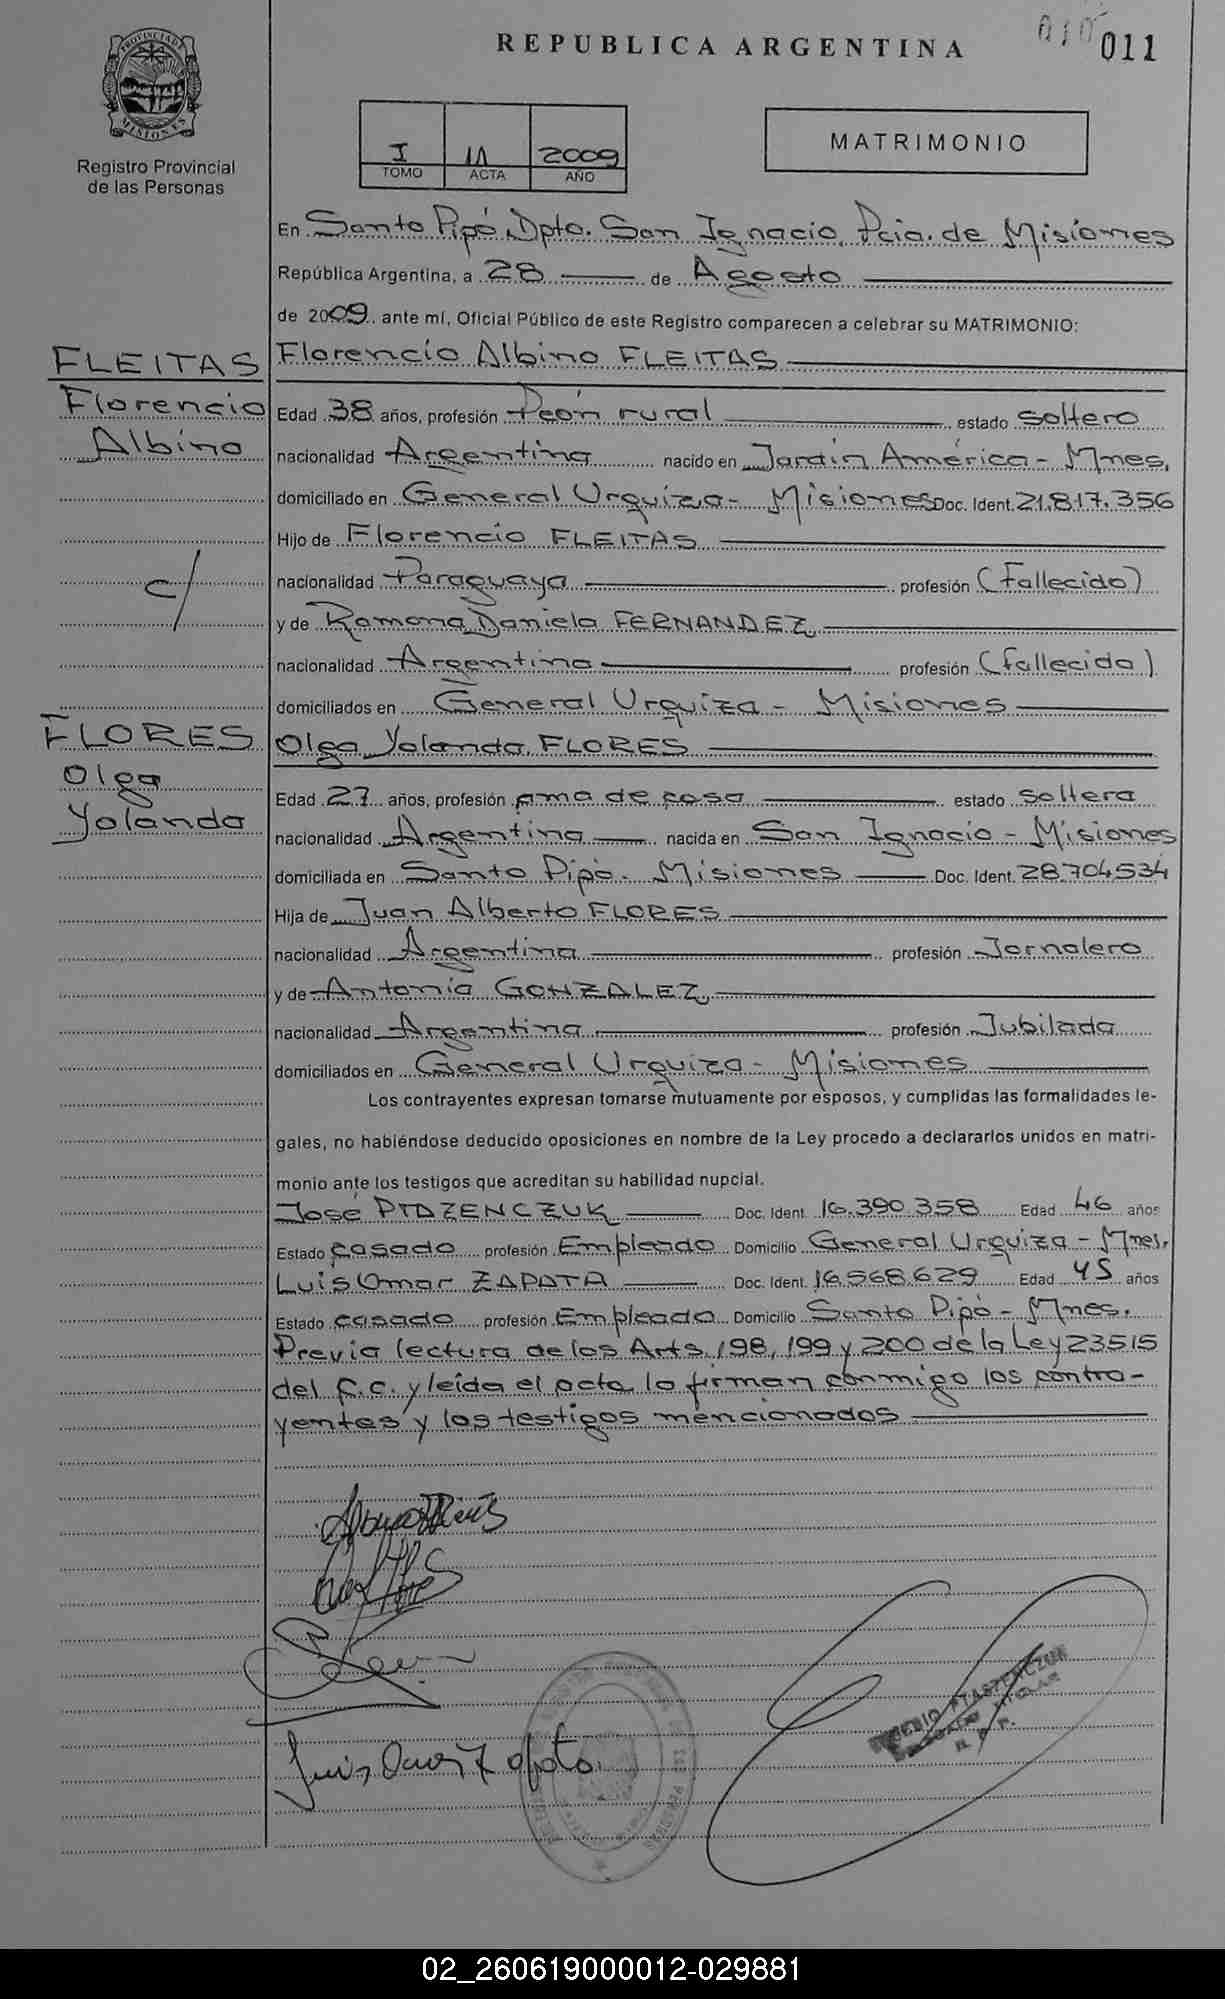 REPUBLICA ARGENTINA
010 011
PROVINCIA DE MISIONES
Registro Provincial
de las Personas
I 11 2009
TOMO ACTA AÑO
MATRIMONIO
En Santo Pipó, Dpto. San Ignacio, Pcia. de Misiones
República Argentina, a 28 de Agosto
de 2009 ante mí, Oficial Público de este Registro comparecen a celebrar su MATRIMONIO:
FLEITAS
Florencio
Albino
c/
FLORES
Olga
Yolanda
Florencio Albino FLEITAS
Edad 38 años, profesión Peón rural estado soltero
nacionalidad Argentina nacido en Jardín América - Mnes.
domiciliado en General Urquiza - Misiones Doc. Ident. 21.817.356
Hijo de Florencio FLEITAS
nacionalidad Paraguaya profesión (Fallecido)
y de Ramona Daniela FERNANDEZ
nacionalidad Argentina profesión (fallecida)
domiciliados en General Urquiza - Misiones
Olga Yolanda FLORES
Edad 27 años, profesión ama de casa estado soltera
nacionalidad Argentina nacida en San Ignacio - Misiones
domiciliada en Santo Pipó - Misiones Doc. Ident. 28.704.534
Hija de Juan Alberto FLORES
nacionalidad Argentina profesión Jornalero
y de Antonia GONZALEZ
nacionalidad Argentina profesión Jubilada
domiciliados en General Urquiza - Misiones
Los contrayentes expresan tomarse mutuamente por esposos, y cumplidas las formalidades le-
gales, no habiéndose deducido oposiciones en nombre de la Ley procedo a declararlos unidos en matri-
monio ante los testigos que acreditan su habilidad nupcial.
José PTAZENCZUK Doc. Ident. 16.390.358 Edad 46 años
Estado casado profesión Empleado Domicilio General Urquiza - Mnes.
Luis Omar ZAPATA Doc. Ident. 16.568.629 Edad 45 años
Estado casado profesión Empleado Domicilio Santo Pipó - Mnes.
Previa lectura de los Arts. 198, 199 y 200 de la Ley 23515
del C.C. y leída el acta, la firman conmigo los contra-
yentes y los testigos mencionados
Luis Omar Zapata
PTASZENCZUK
TITULAR
R. P. P.
02_260619000012-029881